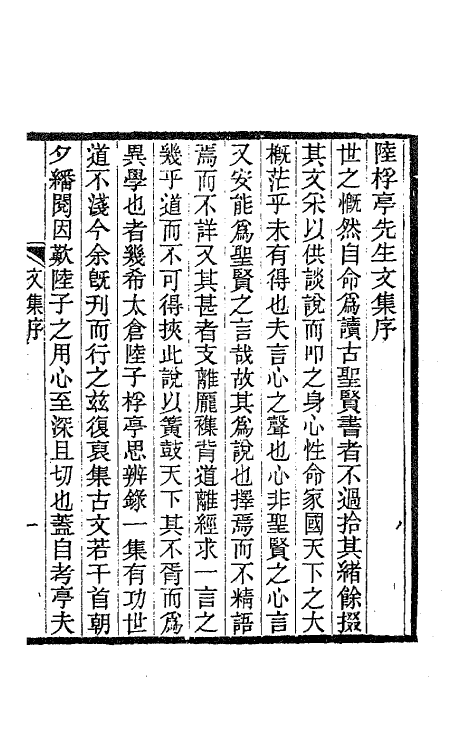 陸桴亭先生文集序
世之慨然自命爲讀古聖賢書者不過拾其緒餘掇
其文采以供談說而叩之身心性命家國天下之大
槪茫乎未有得也夫言心之聲也心非聖賢之心言
又安能爲聖賢之言哉故其爲說也擇焉而不精語
焉而不詳又其甚者支離龎襍背道離經求一言之
幾乎道而不可得挾此說以簧鼓天下其不胥而爲
異學也者幾希太倉陸子桴亭思辨錄一集有功世
道不淺今余旣刊而行之玆復裒集古文若干首朝
夕繙閱因歎陸子之用心至深且切也蓋自考亭夫
文集序
一